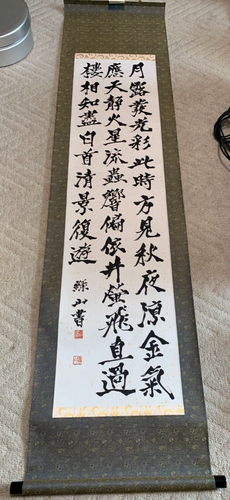 月露發光彩此時方見秋夜涼金氣
應天靜火星流蟲響偏依井螢飛直過
樓相知盡白首清景復追遊
蘇山書